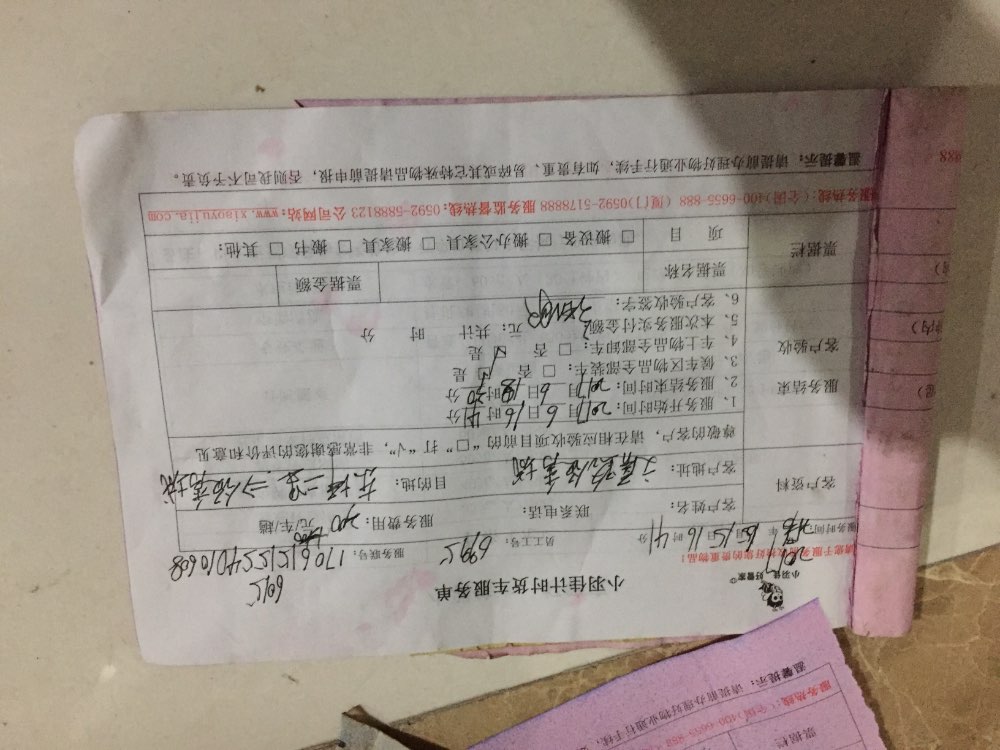 小羽佳 好管家
小羽佳计时货车服务单
695
服务时间: 2017 年 6 月 15 日 16 时 41 分
员工工号: 695
服务联号:
客户资料
客户姓名:
联系电话:
服务费用: 200 元/车/趟
客户地址:
目的地:
尊敬的客户, 请在相应验收项目前的“□”打“√”, 非常感谢您的评价和意见
服务结束
客户验收
1、服务开始时间: 2017 年 6 月 日 16 时 41 分
2、服务结束时间: 2017 年 6 月 日 18 时 30 分
3、候车区物品全部装车: □ 否 □ 是
4、车上物品全部卸车: □ 否 □ 是
5、本次服务实付金额 元; 共计 时 分
6、客户验收签字:
票据栏
票据名称
票据金额
项 目
□ 搬设备 □ 搬办公家具 □ 搬家具 □ 搬书 □ 其他:
服务热线:(全国)400-6655-888 (厦门)0592-5178888 服务监督热线: 0592-5888123 公司网站: www.xiaoyujia.com
温馨提示: 请提前办理好物业通行手续, 如有贵重、易碎或其它特殊物品请提前申报, 否则我司不予负责。
888
票据栏
服务热线:(全国)400-6655-888
温馨提示: 请提前办理好物业通行手续,